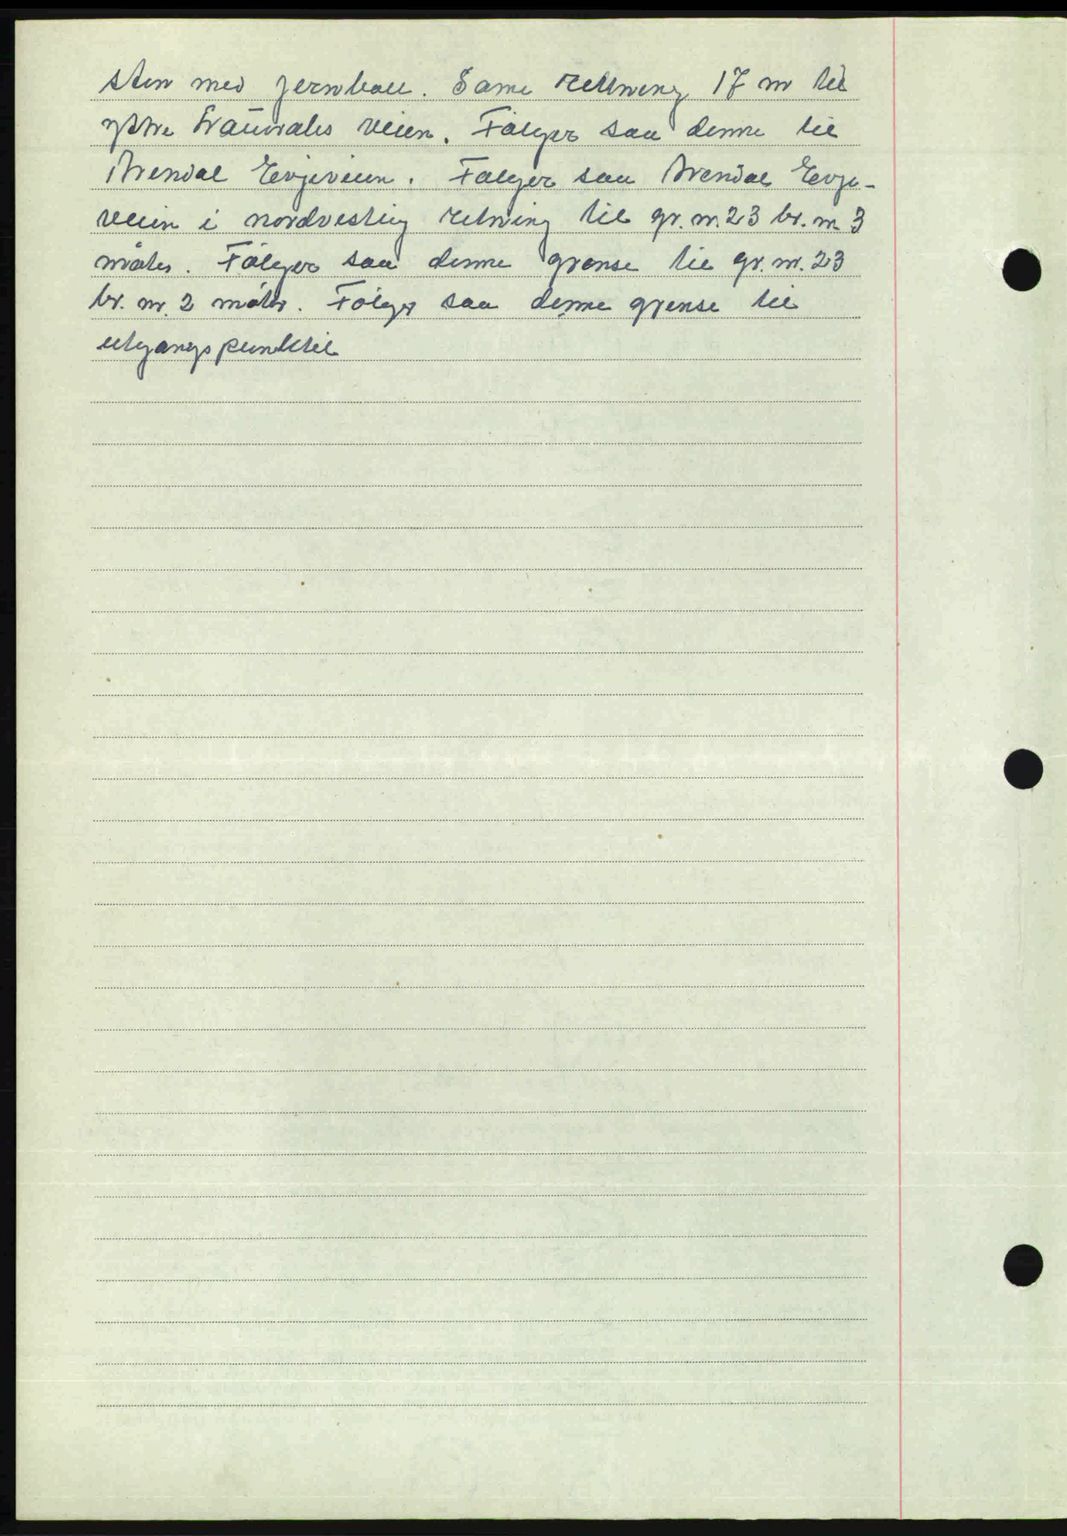 sten med jernbolt. Same retning 17 m til
ystre veien. Følger saa denne til
Arendal Evjeveien. Følger saa Arendal Evje-
veien i nordvestlig retning til gr. nr. 23 br. nr 3
møter. Følger saa denne grense til gr. nr. 23
br. nr. 2 møter. Følger saa denne grense til
utgangspunktet